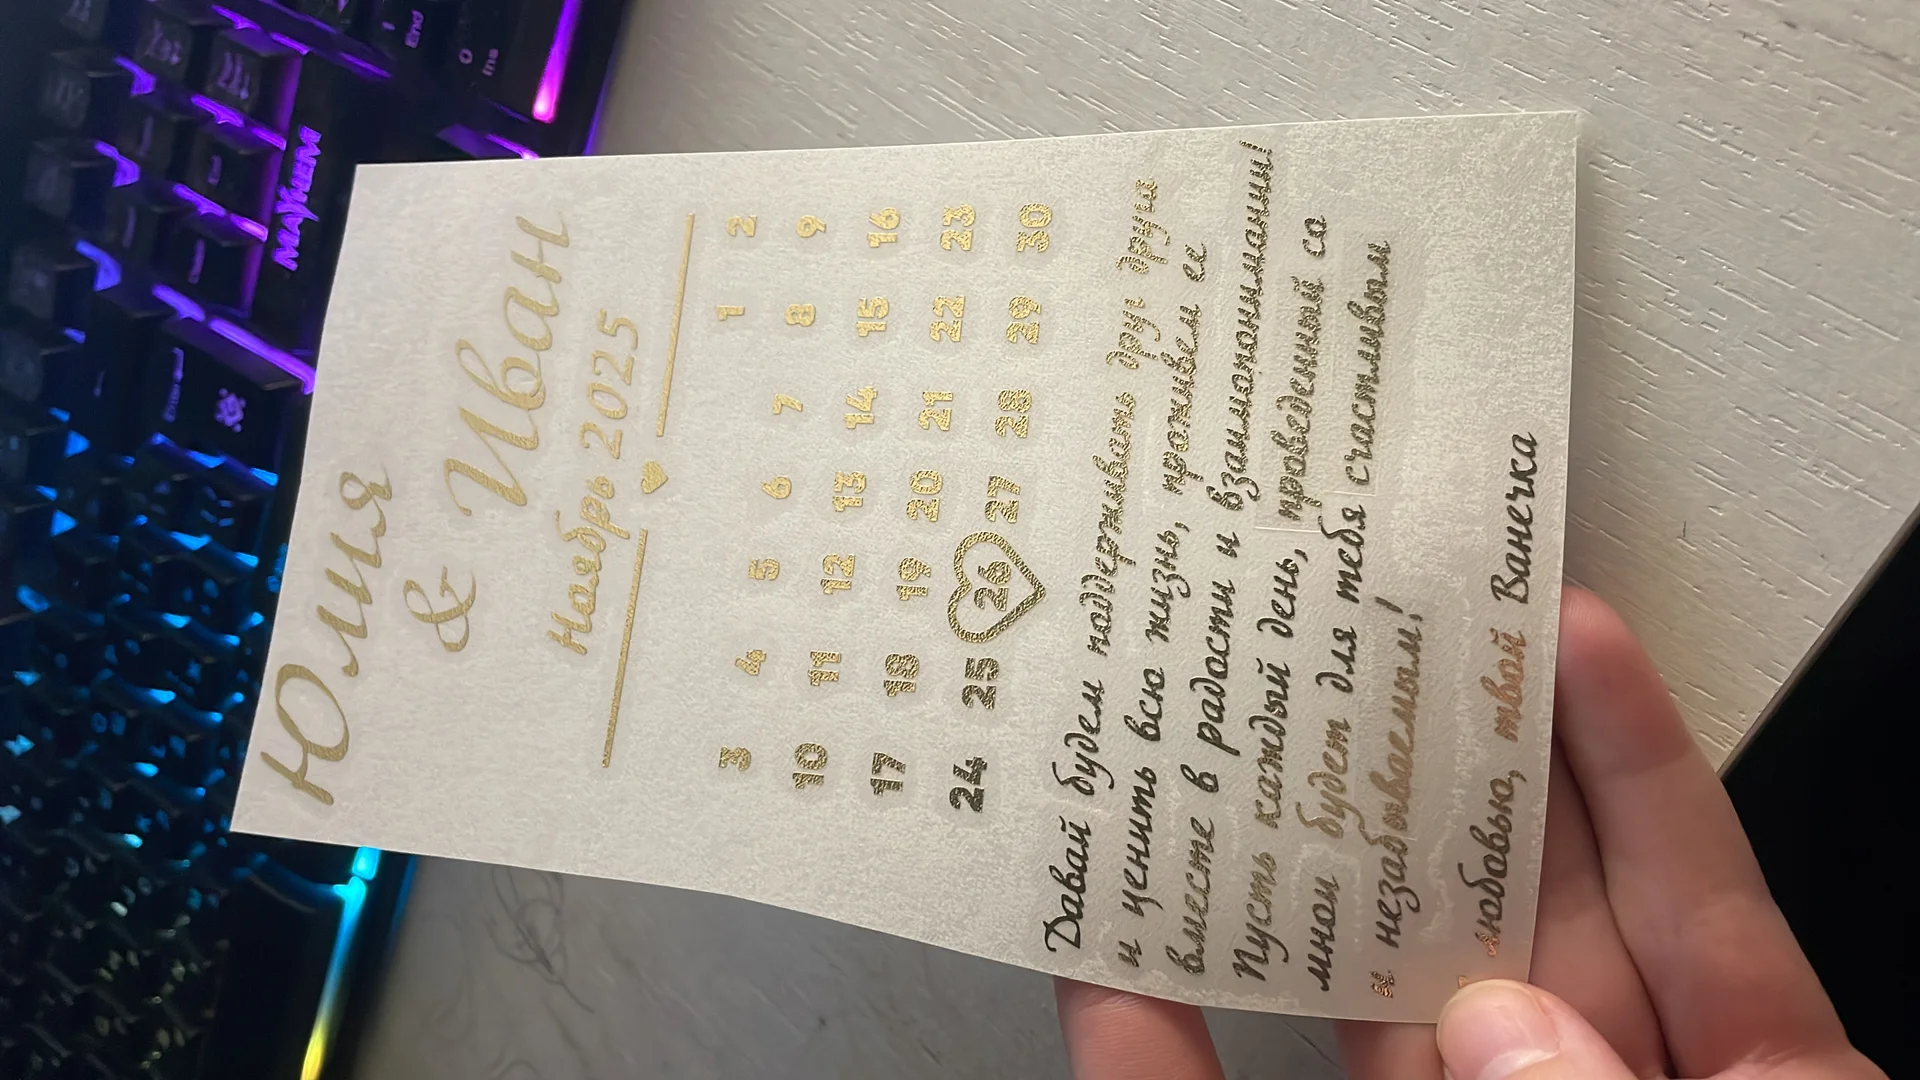 Юлия
&
Иван
Ноябрь 2025
1 2
3 4 5 6 7 8 9
10 11 12 13 14 15 16
17 18 19 20 21 22 23
24 25 26 27 28 29 30
Давай будем поддерживать друг друга
и ценить всю жизнь, проживем ее
вместе в радости и взаимопонимании!
Пусть каждый день, проведенный со
мной будет для тебя счастливым
и незабываемым!
любовью, твой Ванечка
MAXFEM
End
1
0
Ins